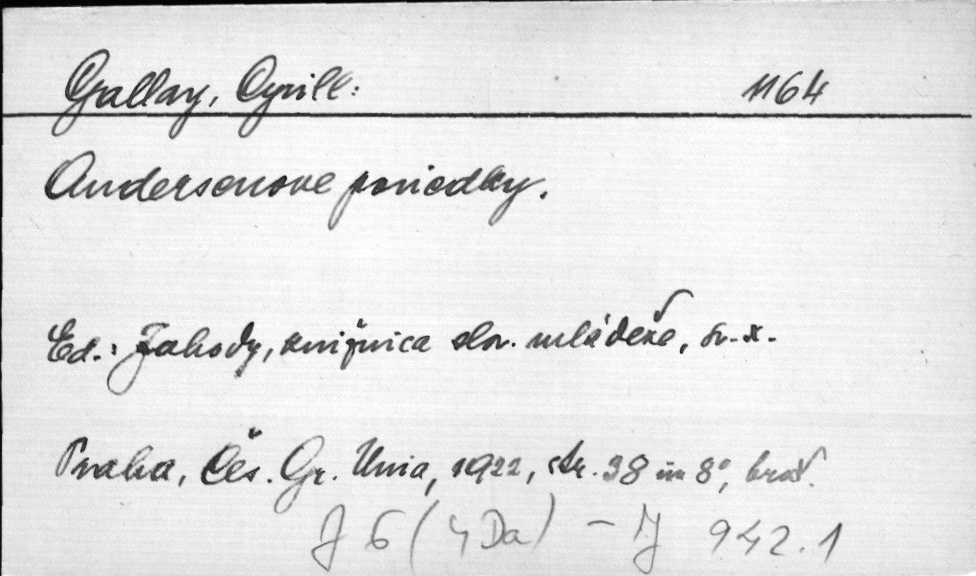 Gallay, Cyrill: 1164
Andersenove poviedky.
Ed.: Jahody, knižnica slov. mládeže, sv. x.
Praha, Čes. Gr. Unia, 1922, str. 38 in 8°, brož.
J 6 (4 Da) – IJ 942.1